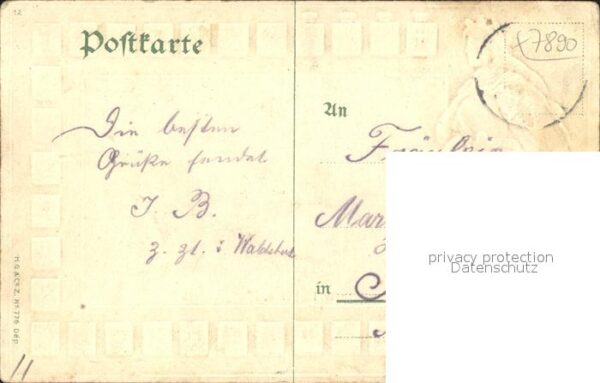 12
Postkarte
x7890
An
Die besten
Grüße sendet
J. B.
z. Zt. i Waldshut
Fräulein
Mar
in
privacy protection
Datenschutz
H.G.&Co.Z. No 776 Dép.
11